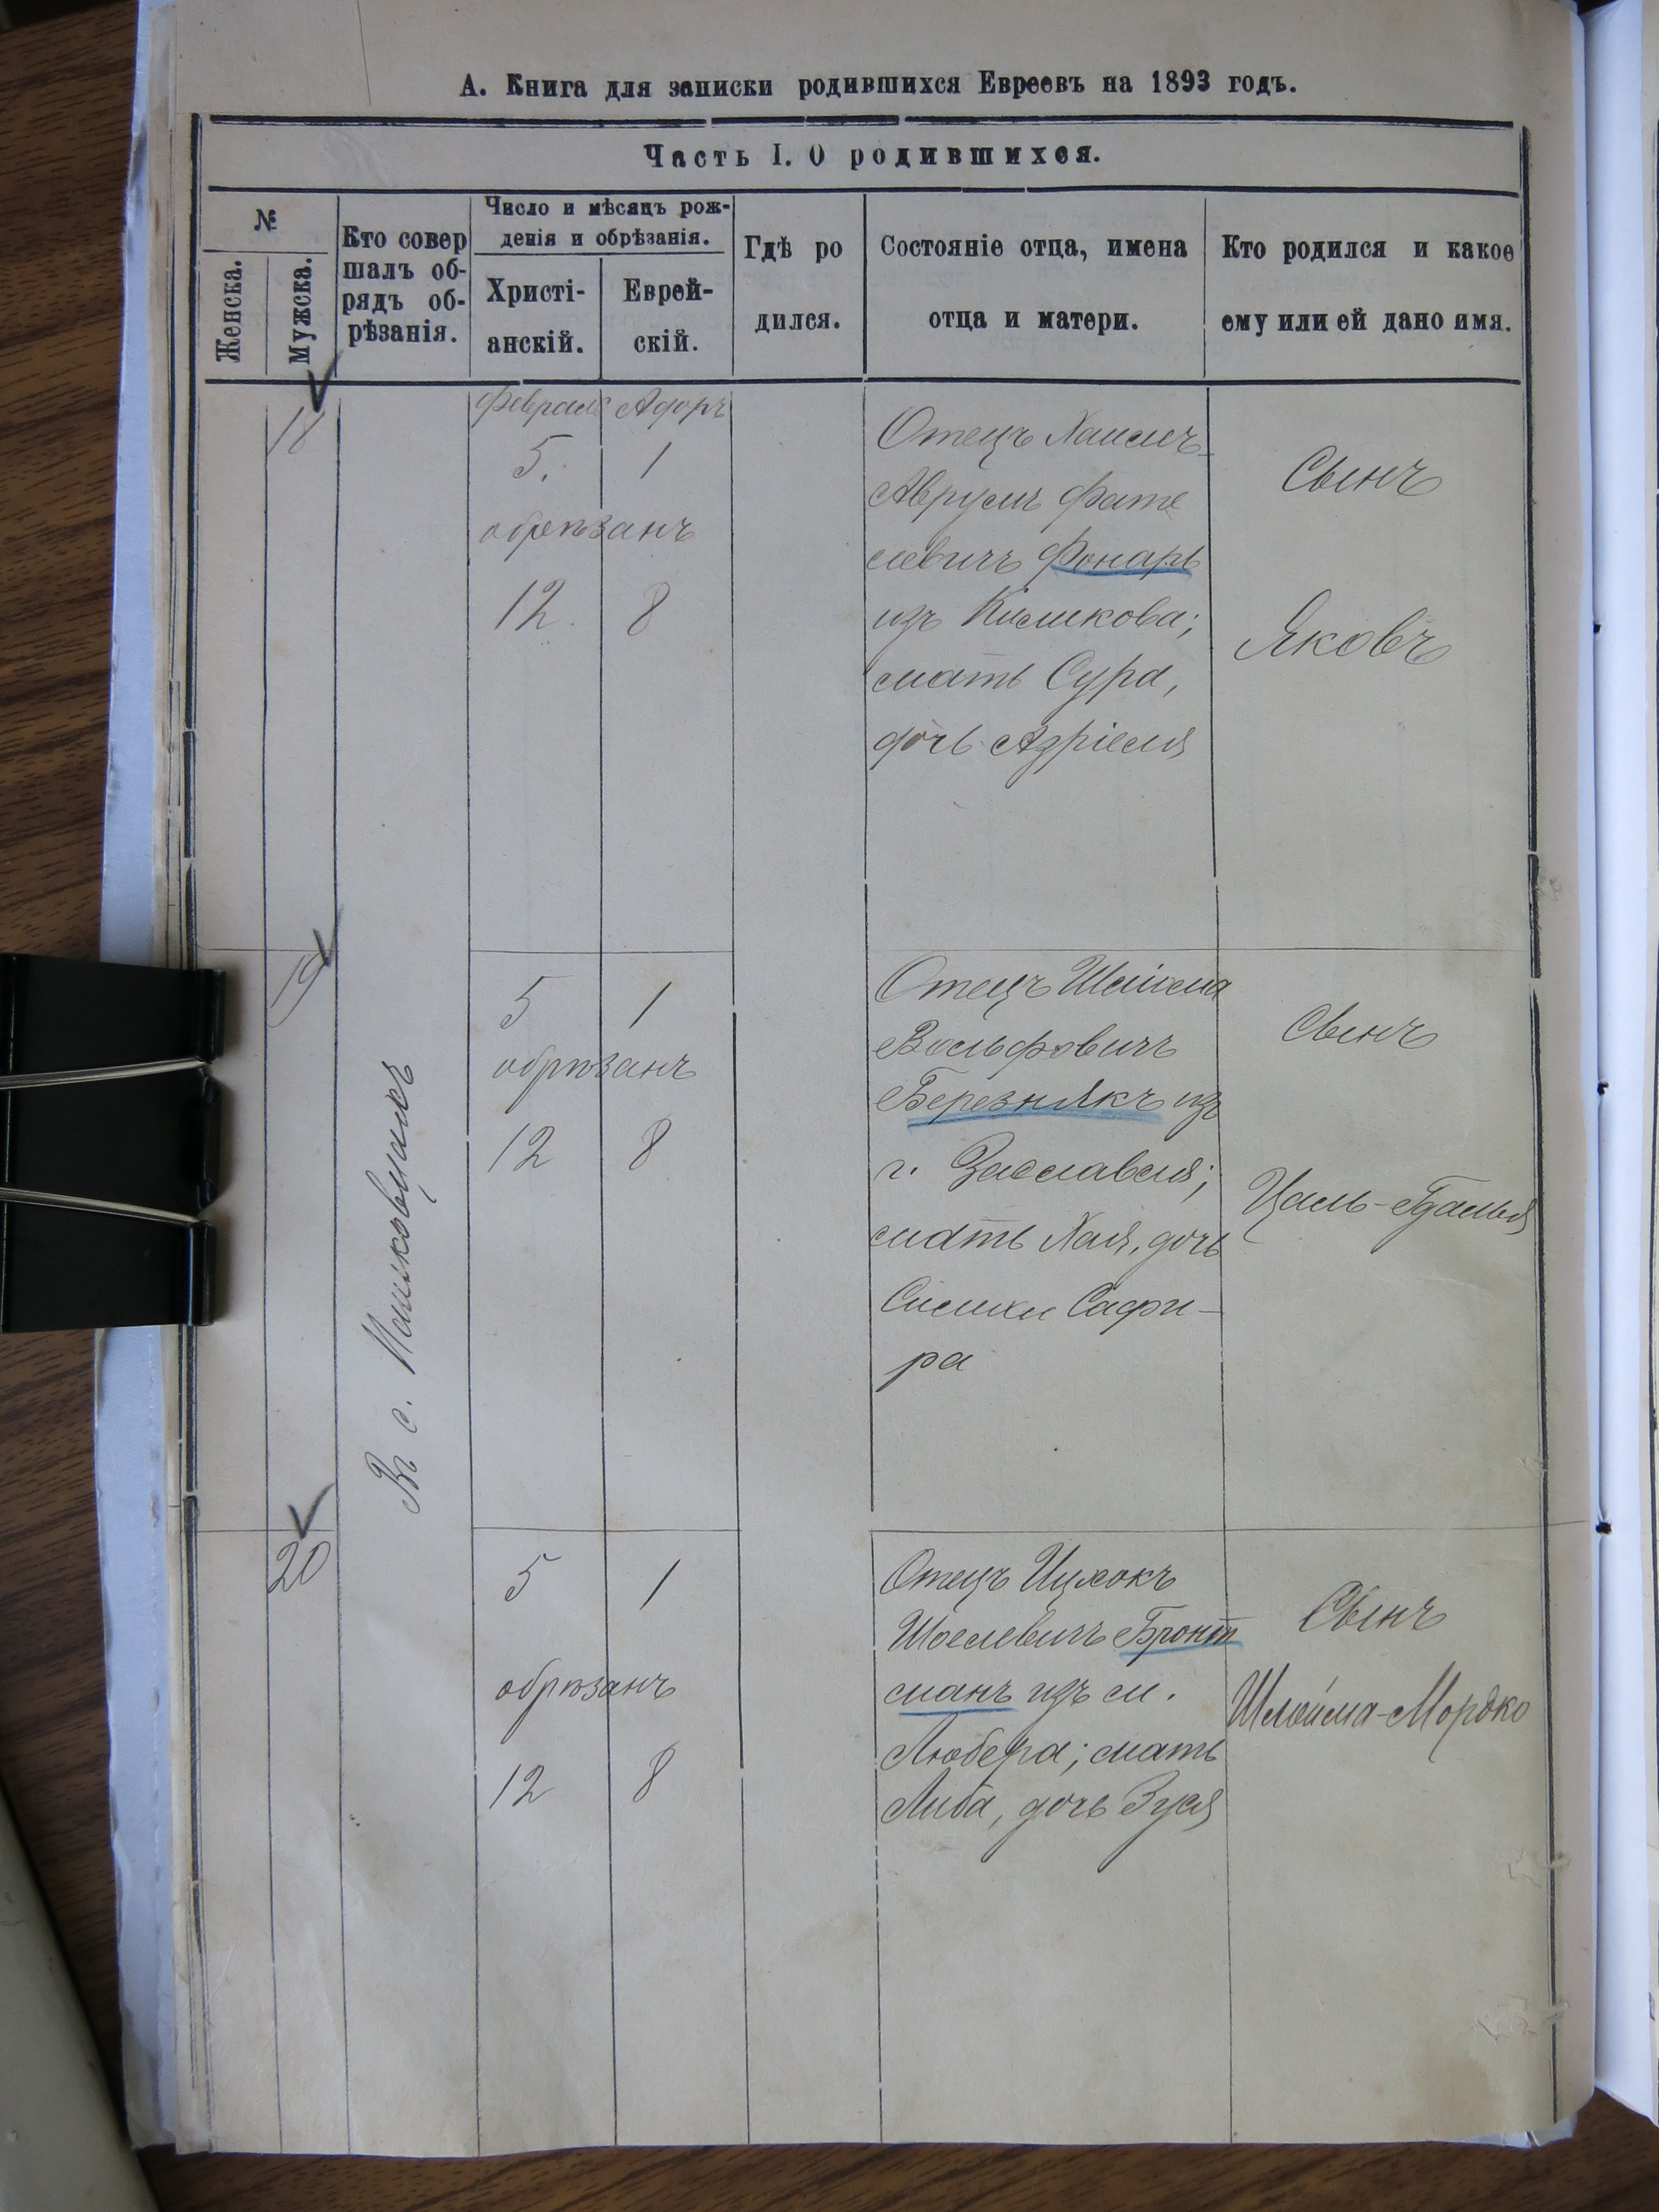 А. Книга для записки родившихся Евреевъ на 1893 годъ.
Часть I. О родившихся.
№
Женска.
Мужска.
Кто совер
шалъ об-
рядъ об-
рѣзанія.
Число и мѣсяцъ рож-
денія и обрѣзанія.
Христі-
анскій.
Еврей-
скій.
Гдѣ ро
дился.
Состояніе отца, имена
отца и матери.
Кто родился и какое
ему или ей дано имя.
18
Февраль Адоръ
5. 1
обрѣзанъ
12. 8
Отецъ Хаимъ-
Аврумъ Фате
левичъ Фонарь
изъ Климкова;
мать Сура,
дочь Азріеля
Сынъ
Яковъ
19
5 1
обрѣзанъ
12 8
Отецъ
Вольфовичъ
Березнякъ изъ
г. Заславля;
мать Хая, дочь
Симхи Сафи-
ра
Сынъ
Цаль-Гдалья
Въ с.
20
5 1
обрѣзанъ
12 8
Отецъ Ицхокъ
Шоелевичъ Бронт
манъ изъ м.
Любера; мать
Либа, дочь Зуся
Сынъ
Шлойма-Мордко